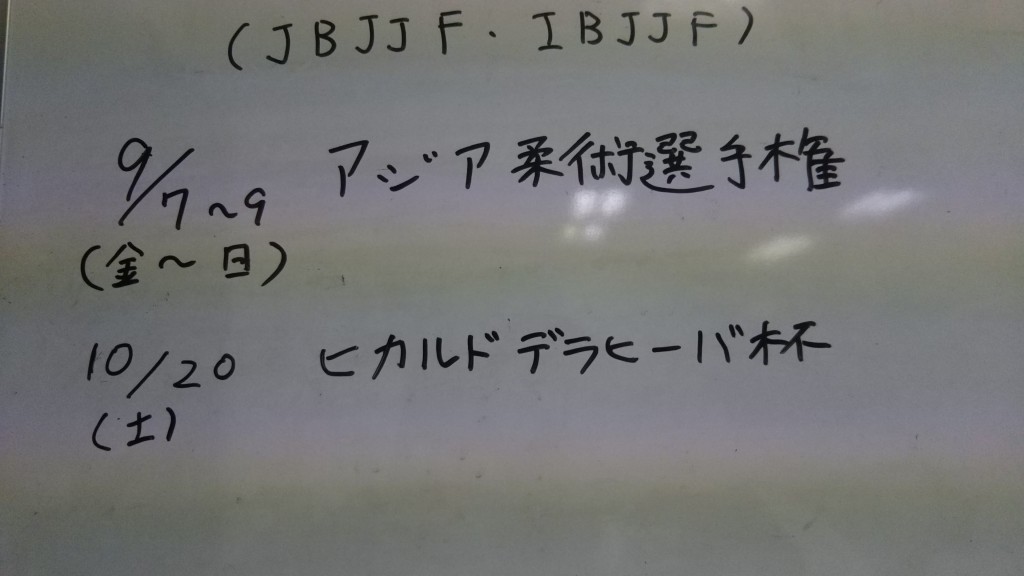 (JBJJF・IBJJF)
9/7~9 アジア柔術選手権
(金~日)
10/20 ヒカルドデラヒーバ杯
(土)